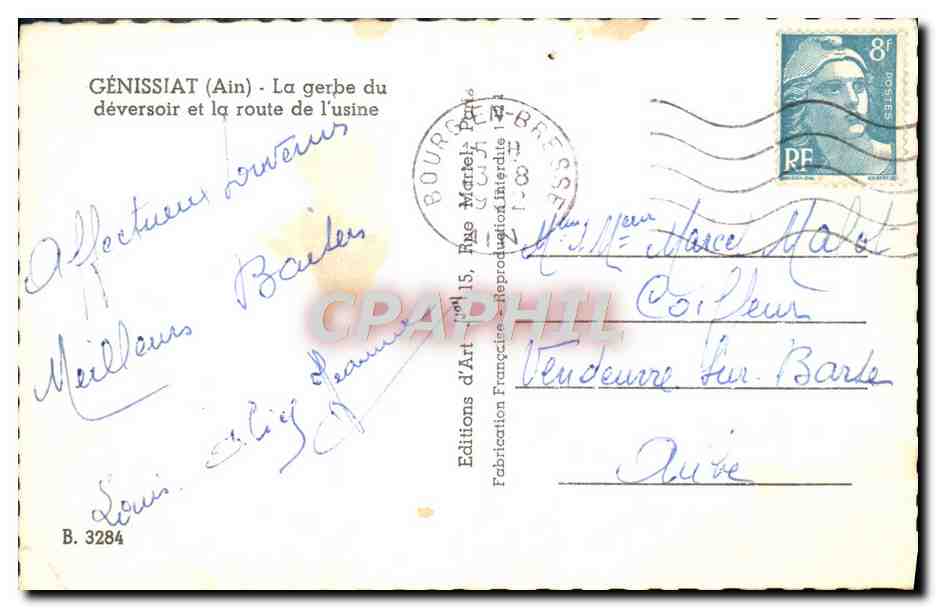 GÉNISSIAT (Ain) - La gerbe du
déversoir et la route de l'usine
Affectueux Souvenirs
Meilleurs Baisers
Louis Alice Jeannine
B. 3284
Editions d'Art 15, Rue Martel, Paris
Fabrication Française - Reproduction interdite
BOURG-EN-BRESSE
AIN
8f
POSTES
RF
Marcel Malot
Coiffeur
Vendeuvre Sur Barse
Aube
CPAPHIL